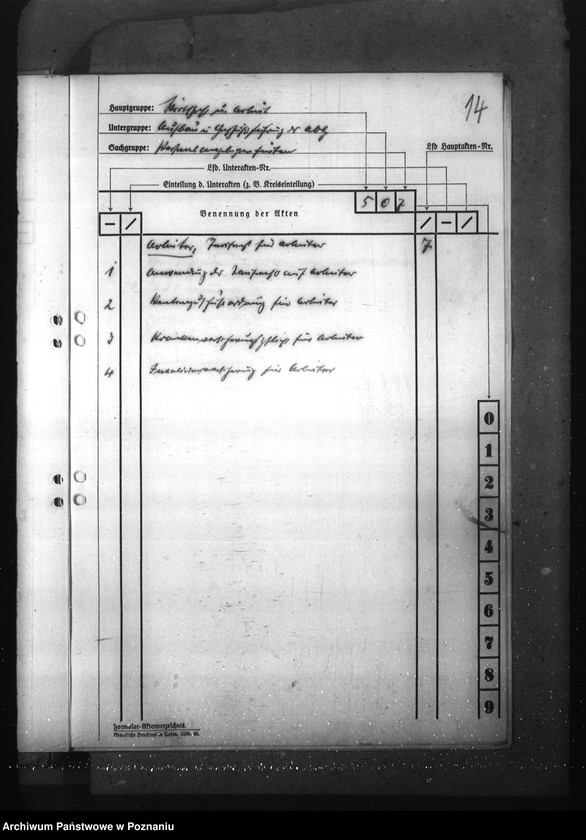 14
Hauptgruppe: Wirtschaft u. Arbeit
Untergruppe: Aufbau u. Geschäftsführung der Abtg
Sachgruppe: Personalangelegenheiten
Lfd Hauptakten-Nr.
Lfd. Unterakten-Nr.
Einteilung d. Unterakten (z. B. Kreiseinteilung)
5 0 7
— / Benennung der Akten / — /
Arbeiter, für Arbeiter 7
1 Anwendung der auf Arbeiter
2 für Arbeiter
3 Krankenversicherungspflicht für Arbeiter
4 Invalidenversicherung für Arbeiter
0
1
2
3
4
5
6
7
8
9
Formular-Aktenverzeichnis.
Archiwum Państwowe w Poznaniu